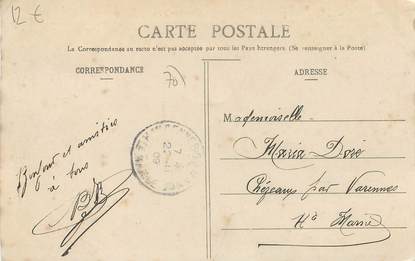 12 €
CARTE POSTALE
La Correspondance au recto n'est pas acceptée par tous les Pays étrangers (Se renseigner à la Poste)
CORRESPONDANCE
70
ADRESSE
Bonjour et amitiés
à tous
Mademoiselle
Maria Doré
par Varennes
Hte Marne
7-4
09